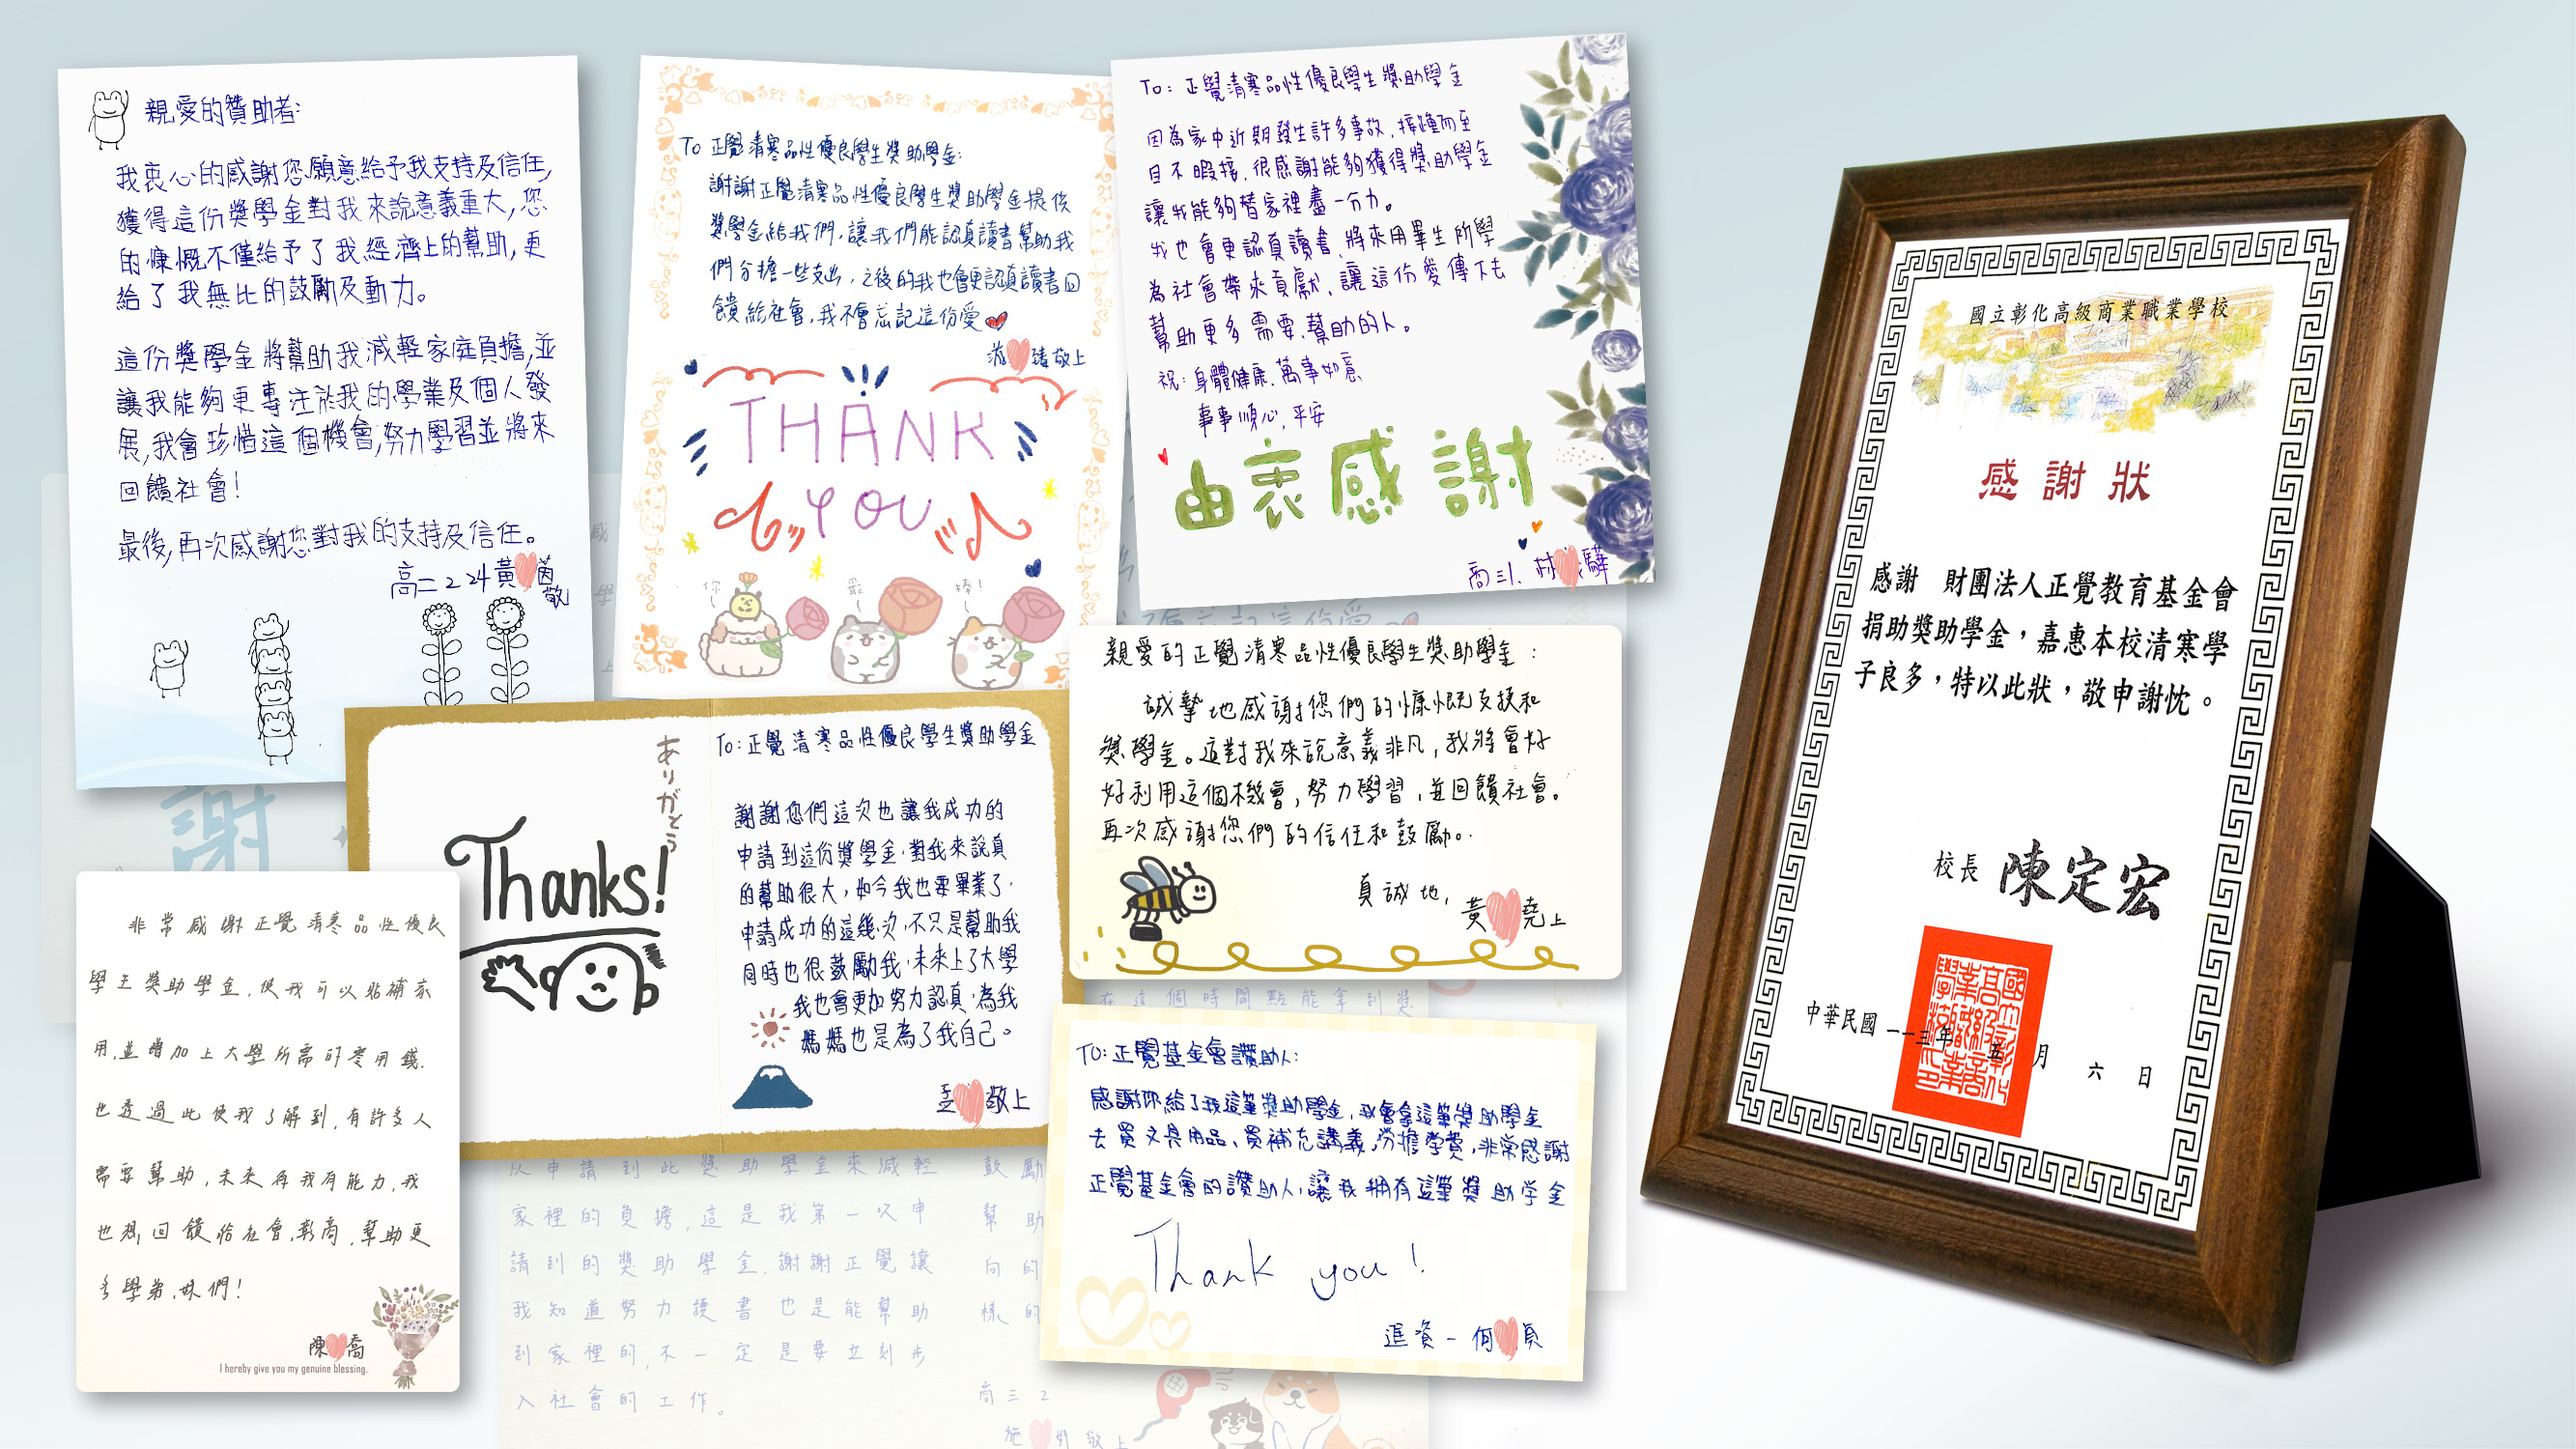 親愛的贊助者:
我衷心的感謝您願意給予我支持及信任,
獲得這份獎學金對我來說意義重大,您
的慷慨不僅給予了我經濟上的幫助,更
給了我無比的鼓勵及動力。
這份獎學金將幫助我減輕家庭負擔,並
讓我能夠更專注於我的學業及個人發
展,我會珍惜這個機會,努力學習並將來
回饋社會!
最後,再次感謝您對我的支持及信任。
高二224黃 茵
敬
To 正覺清寒品性優良學生獎助學金:
謝謝正覺清寒品性優良學生獎助學金提供
獎學金給我們,讓我們能認真讀書幫助我
們分擔一些支出,之後的我也會更認真讀書回
饋給社會,我不會忘記這份愛
臻敬上
THANK
YOU
你
最
棒!
To: 正覺清寒品性優良學生獎助學金
因為家中近期發生許多事故,接踵而至
目不暇接,很感謝能夠獲得獎助學金
讓我能夠替家裡盡一份力。
我也會更認真讀書,將來用畢生所學
為社會帶來貢獻,讓這份愛傳下去
幫助更多需要幫助的人。
祝:身體健康,萬事如意
事事順心,平安
由衷感謝
商三1. 林 驊
親愛的正覺清寒品性優良學生獎助學金:
誠摯地感謝您們的慷慨支援和
獎學金。這對我來說意義非凡,我將會好
好利用這個機會,努力學習,並回饋社會。
再次感謝您們的信任和鼓勵。
真誠地,
黃 堯上
ありがとう
Thanks!
To:正覺清寒品性優良學生獎助學金
謝謝您們這次也讓我成功的
申請到這份獎學金,對我來說真
的幫助很大,如今我也要畢業了,
申請成功的這幾次,不只是幫助我
同時也很鼓勵我,未來上了大學
我也會更加努力認真,為我
媽媽也是為了我自己。
孟 敬上
非常感謝正覺清寒品性優良
學生獎助學金,使我可以貼補家
用,並增加上大學所需的零用錢.
也透過此使我了解到,有許多人
需要幫助,未來有我有能力,我
也想回饋給社會,彰商,幫助更
多學弟.妹們!
陳 喬
I hereby give you my genuine blessing.
To:正覺基金會讚助人:
感謝你給了我這筆獎助學金,我會拿這筆獎助學金
去買文具用品、買補充講義,分擔学費,非常感謝
正覺基金會的讚助人,讓我擁有這筆獎助学金
Thank you!
進資一 何 貞
謝
在這個時間點能拿到獎
以申請到此獎助學金來減輕
家裡的負擔,這是我第一次申
請到的獎助學金,謝謝正覺讓
我知道努力讀書也是能幫助
到家裡的,不一定是要立刻步
入社會的工作。
鼓勵
幫助
向的
樣的
商三2
施 妤敬上
國立彰化高級商業職業學校
感謝狀
感謝 財團法人正覺教育基金會
捐助獎助學金,嘉惠本校清寒學
子良多,特以此狀,敬申謝忱。
校長 陳定宏
中華民國一一三年 五 月 六 日